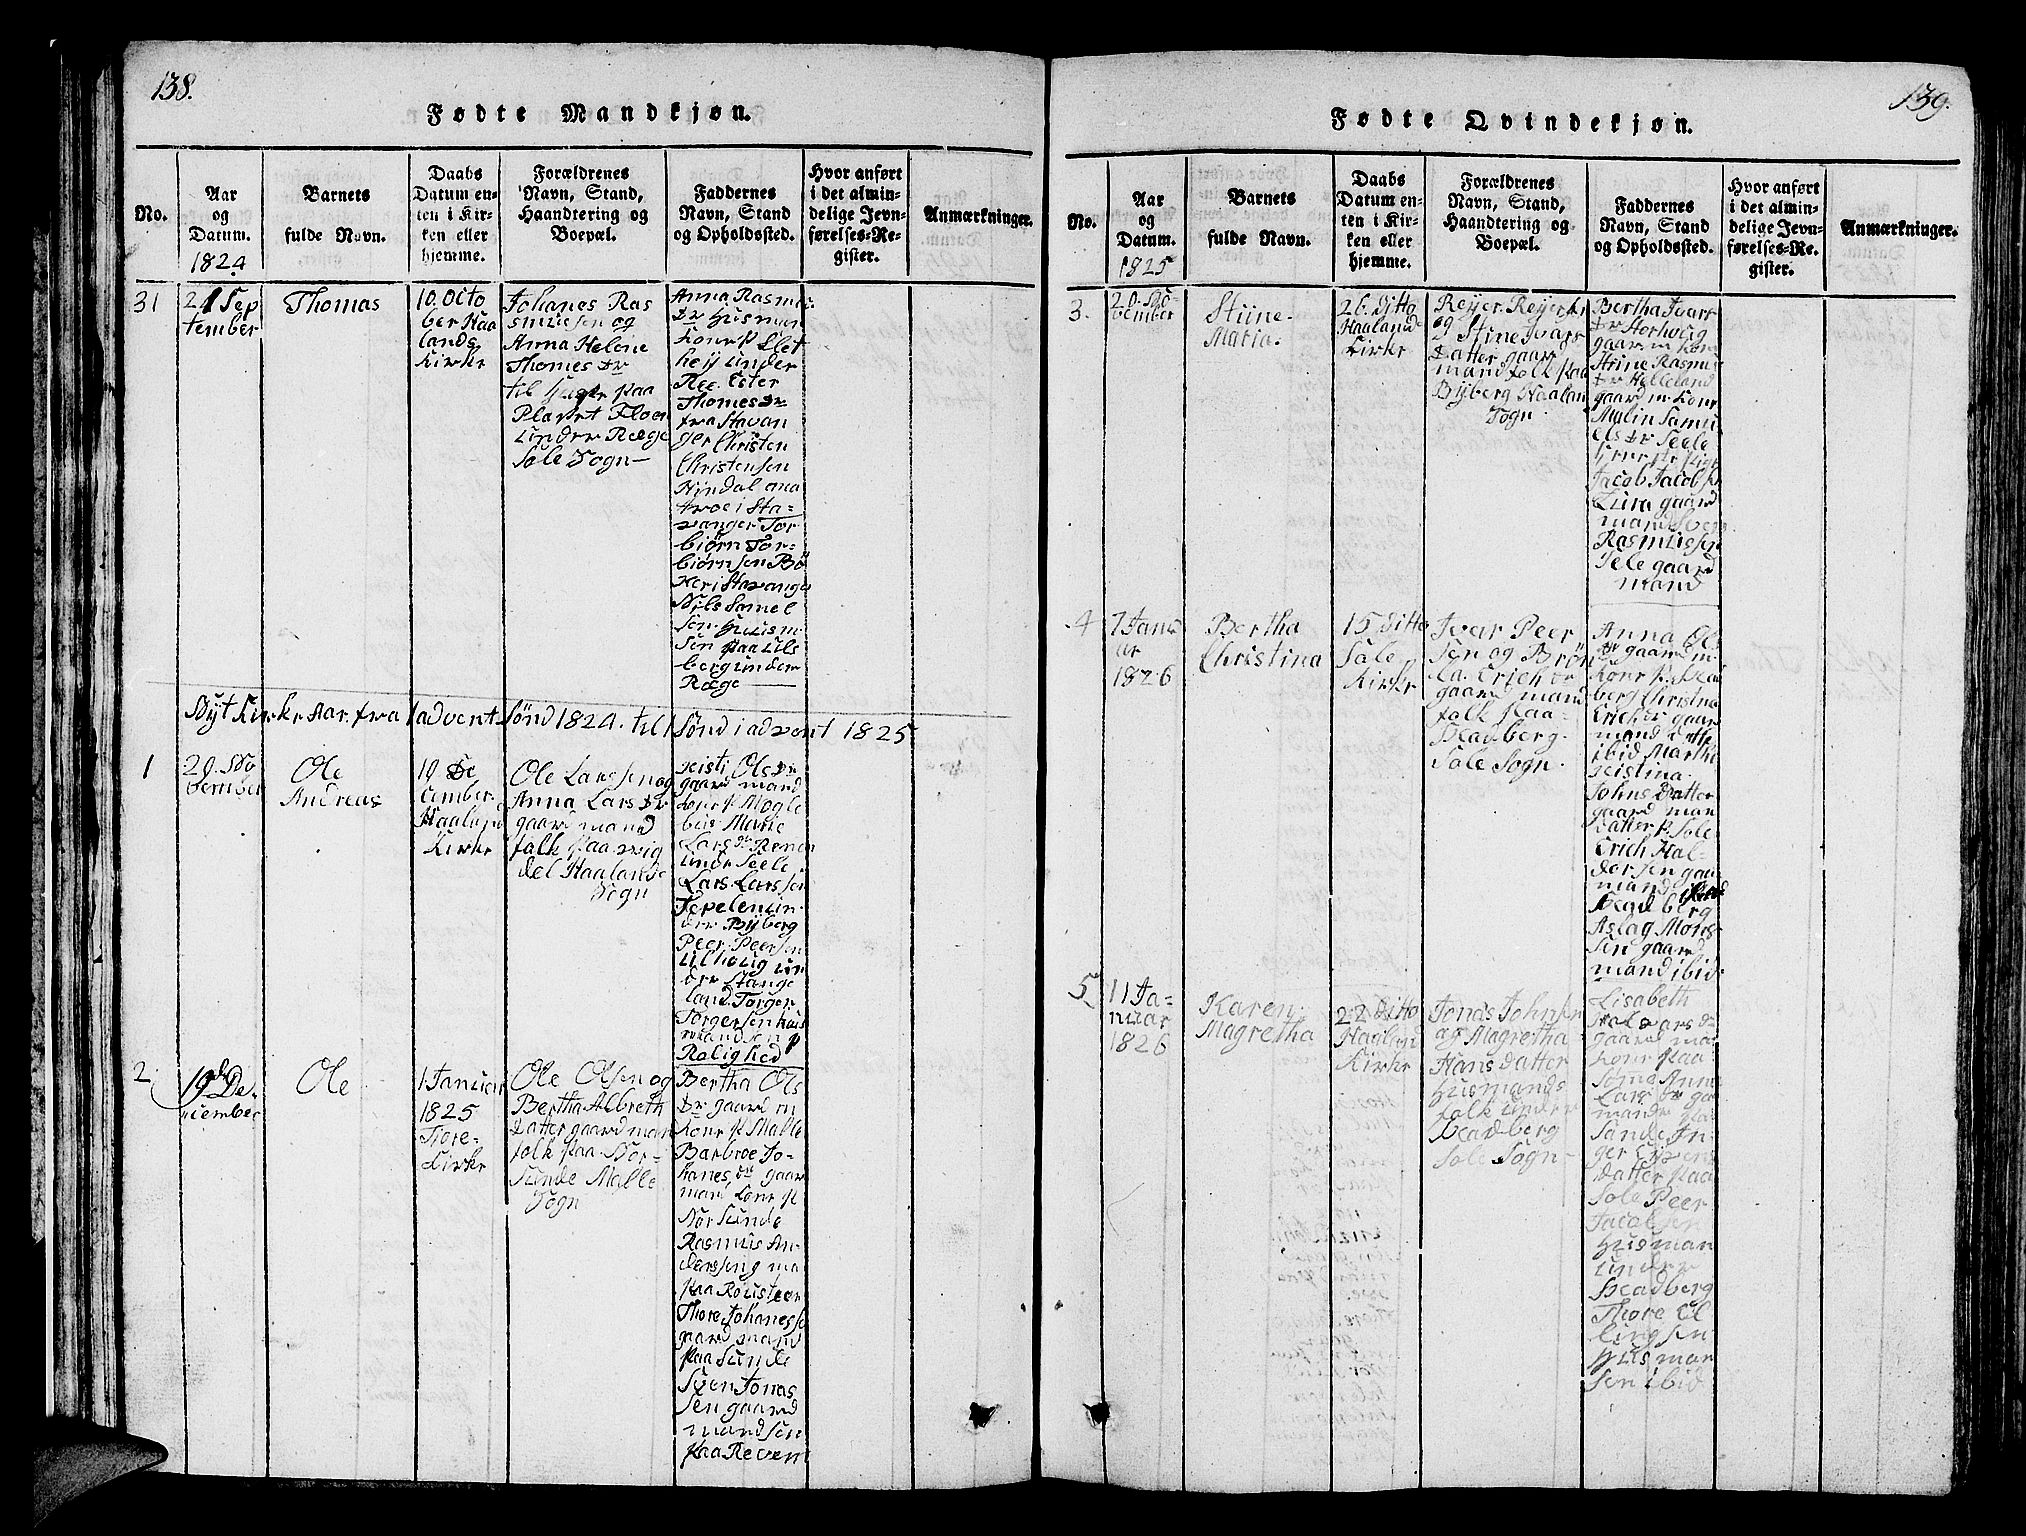 138.
Fødte Mandkjøn.
No.
Aar
og
Datum.
1824
Barnets
fulde Navn.
Daabs
Datum en-
ten i Kir-
ken eller
hjemme.
Forældrenes
Navn, Stand,
Haandtering og
Boepæl.
Faddernes
Navn, Stand
og Opholdssted.
Hvor anført
i det almin-
delige Jevn-
førelses-Re-
gister.
Anmærkninger.
31
21 Sep
tember
Thomas
10. Octo
ber Haa
lands
Kirke
Johanes Ras
smussen og
Anna Helene
Thomes Dr
Pladset
under Rege
Sole Sogn
Anna Rasmus
Dr Husman
Kone p Slet
hey under
Ree. Ester
Thomes Dr
fra Stavan
ger Christen
Christensen
Hindal ma
troe i Sta-
vanger Tor
biørn Tor-
biørnsen Bø
ker i Stavange
Nils Samel
sen Huusm.
Søn paa Lils
berg under
Rege
Nyt Kirke Aar. fra 1 advent Sønd 1824. til 1 Sønd i advent 1825
1
29. No
vember
Ole
Andreas
19 De
cember
Haaland
Kirke
Ole Larssen og
Anna Lars Dr
gaard mand
folk paa
Haalands
Sogn
Kisti Ols Dr
gaard mand
kone p Mogle
bus Marie
Lars Dr
Seele
Lars Larssen
Tepelen un-
der Byberg
Peer Peersen
un
der Stange
land. Torger
Torgersen huus
mand Søn p
Rolighed
2
19 De-
cember
Ole
1 Januar
1825
Tiore-
Kirke
Ole Olsen og
Bertha Albreth
Datter gaard man
folk paa Nor-
Sunde Malle
Sogn
Bertha Ols
Dr gaard m
kone p Malle
Barbroe Jo-
hanes Dr gaar
mand kone p
Nor Sunde
Rasmus An-
derssen g ma
paa
Thore Johanesse
gaard mand
paa Sunde
Sven Jonas
sen gaard
mand søn
paa Reven
139.
Fødte Qvindekjøn.
No.
Aar
og
Datum.
1825
Barnets
fulde Navn.
Daabs
Datum en-
ten i Kir-
ken eller
hjemme.
Forældrenes
Navn, Stand,
Haandtering og
Boepæl.
Faddernes
Navn, Stand
og Opholdssted.
Hvor anført
i det almin-
delige Jevn-
førelses-Re-
gister.
Anmærkninger.
3.
20. No-
vember
Stiine
Maria.
26. Ditto
Haaland
Kirke
Reyer Reyers
og Stine Ivars
Datter gaar
mand folk paa
Byberg Haalan
Sogn.
Bertha Ivars
Dr
gaar m kone
Stine Rasmus
Dr Helleland
gaard m kone
Malin Samu
els Dr Seele
Jacob Jacobs
gaard
mand
Rasmussen
Sele gaard
mand
4
7 Janu
ar
1826
Bertha
Christina
15 Ditto
Sole
Kirke
Ivar Peer
sen og Brøn
la Erich Dr
gaard mand
folk paa
Sole Sogn.
Anna Ols
Dr gaard m
kone p.
berg Christina
Erich Dr gaar
mand Datter
ibid Martha
Kistina
Johns Datter
gaard man
Datter p. Sole
Erich Hal-
dersen gaa
mand
Aslag Mons
sen gaard
mand ibid
5
11 Ja-
nuar
1826
Karen
Magretha
22 Ditto
Haalan
Kirke
Jonas Johnsen
og Magretha
Hans Datter
Husmands
folk under
Sole Sogn
Lisabeth
Halvars Dr
gaard ma
kone paa
Sømme Anne
Lars Dr ga
mand
Sande In-
ger
Datter paa
Sole Peer
Jacobsen
Husman
under
Thore El
lingsen
Husman
sen ibid